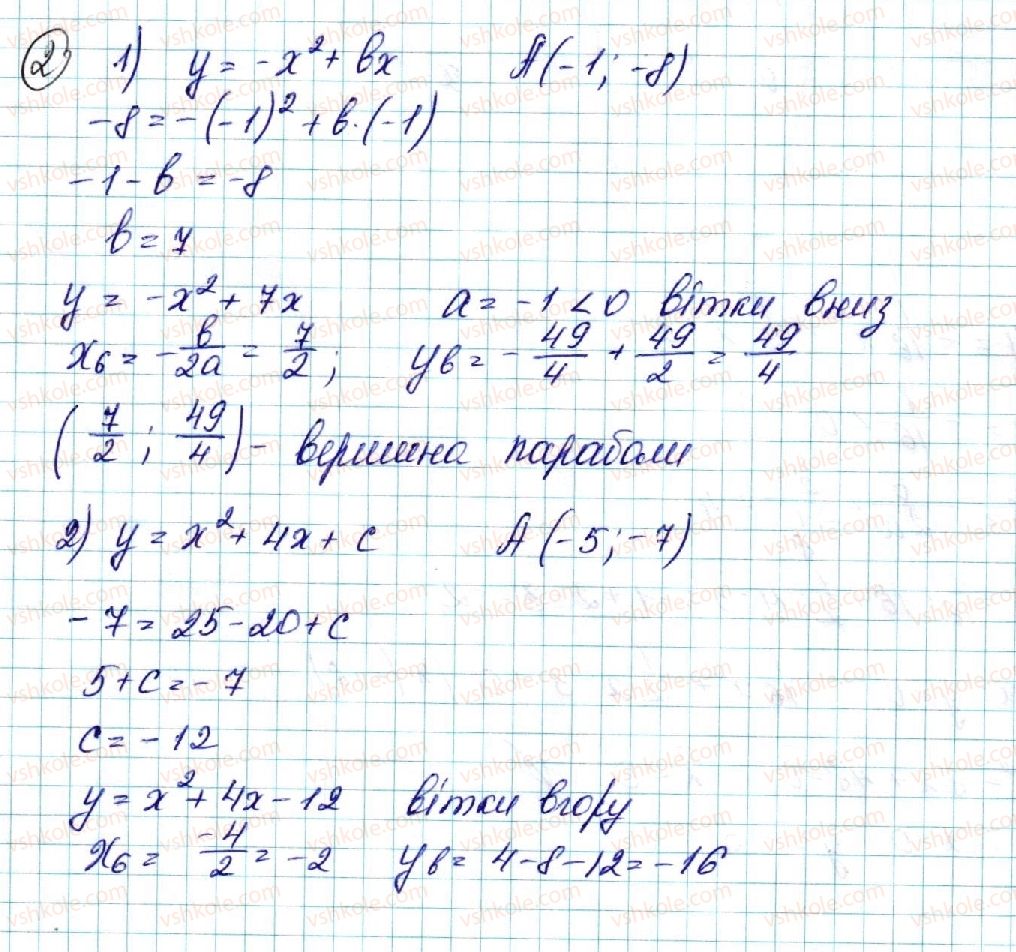 2 1) y = -x² + bx A(-1; -8)
-8 = -(-1)² + b·(-1)
-1 - b = -8
b = 7
y = -x² + 7x a = -1 < 0 вітки вниз
x₆ = -b/2a = 7/2; yв = -49/4 + 49/2 = 49/4
(7/2; 49/4) - вершина параболи
2) y = x² + 4x + c A(-5; -7)
-7 = 25 - 20 + c
5 + c = -7
c = -12
y = x² + 4x - 12 вітки вгору
x₆ = -4/2 = -2 yв = 4 - 8 - 12 = -16